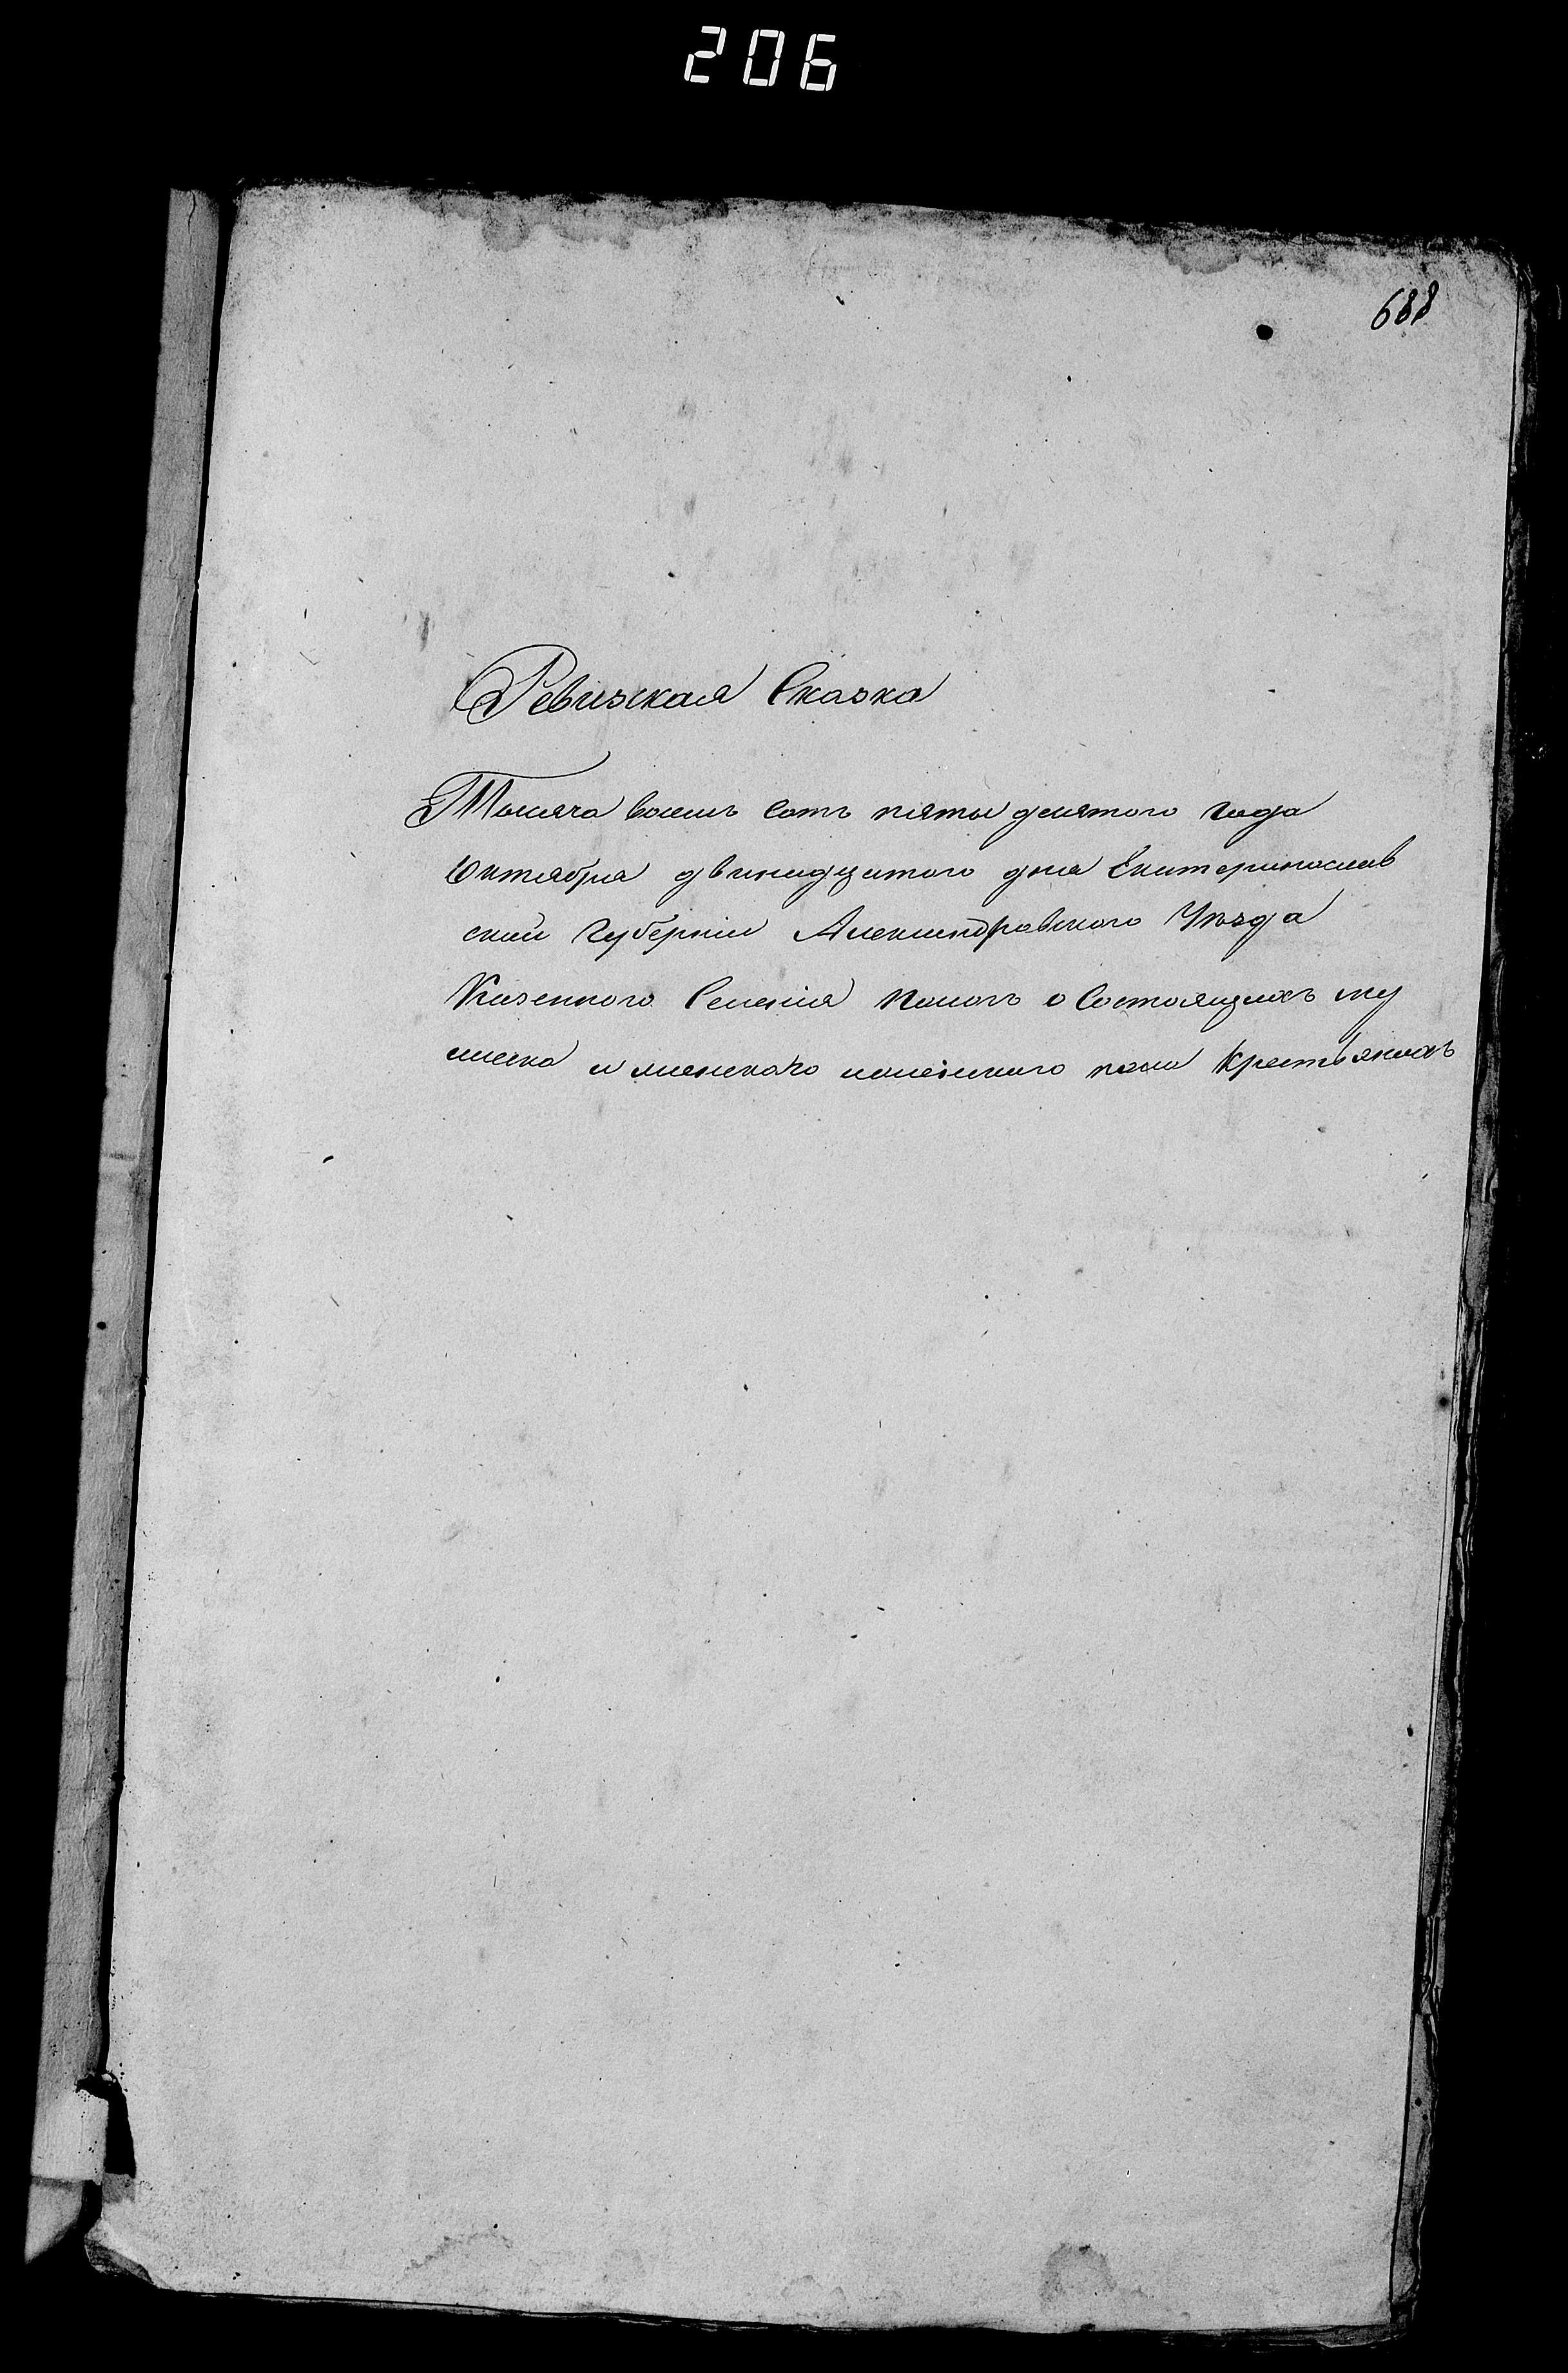 206
688
Ревизская Сказка
Тысяча восемь сотъ пяты десятого года
Октября двенадцатого дня Екатеринослав
ской Губерніи Александровского Уѣзда
Казенного Селенія о Состоящихъ му
жеска и женскаго пола Крестьянахъ